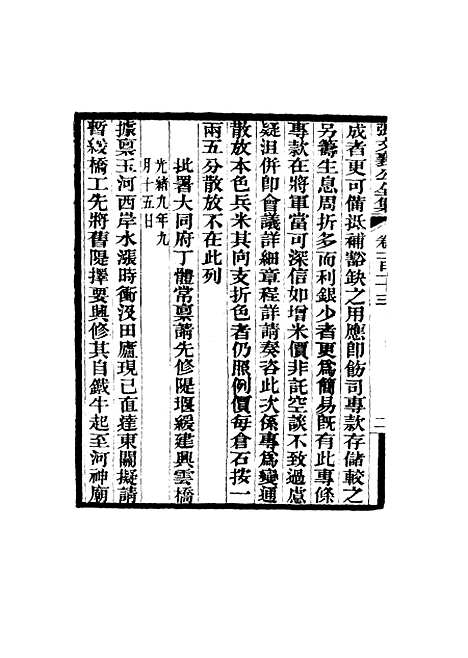 張文襄公全集 卷一百十三 二
成者更可備抵補豁缺之用應卽飭司專款存儲較之
另籌生息周折多而利銀少者更爲簡易旣有此專條
專款在將軍當可深信如增米價非託空談不致過慮
疑沮併卽會議詳細章程詳請奏咨此次係專爲變通
散放本色兵米其向支折色者仍照例價每倉石按一
兩五分散放不在此列
批署大同府丁體常稟請先修隄堰緩建興雲橋
光緒九年九
月十五日
據稟玉河西岸水漲時衝汲田廬現已直達東關擬請
暫緩橋工先將舊隄擇要興修其自鐵牛起至河神廟